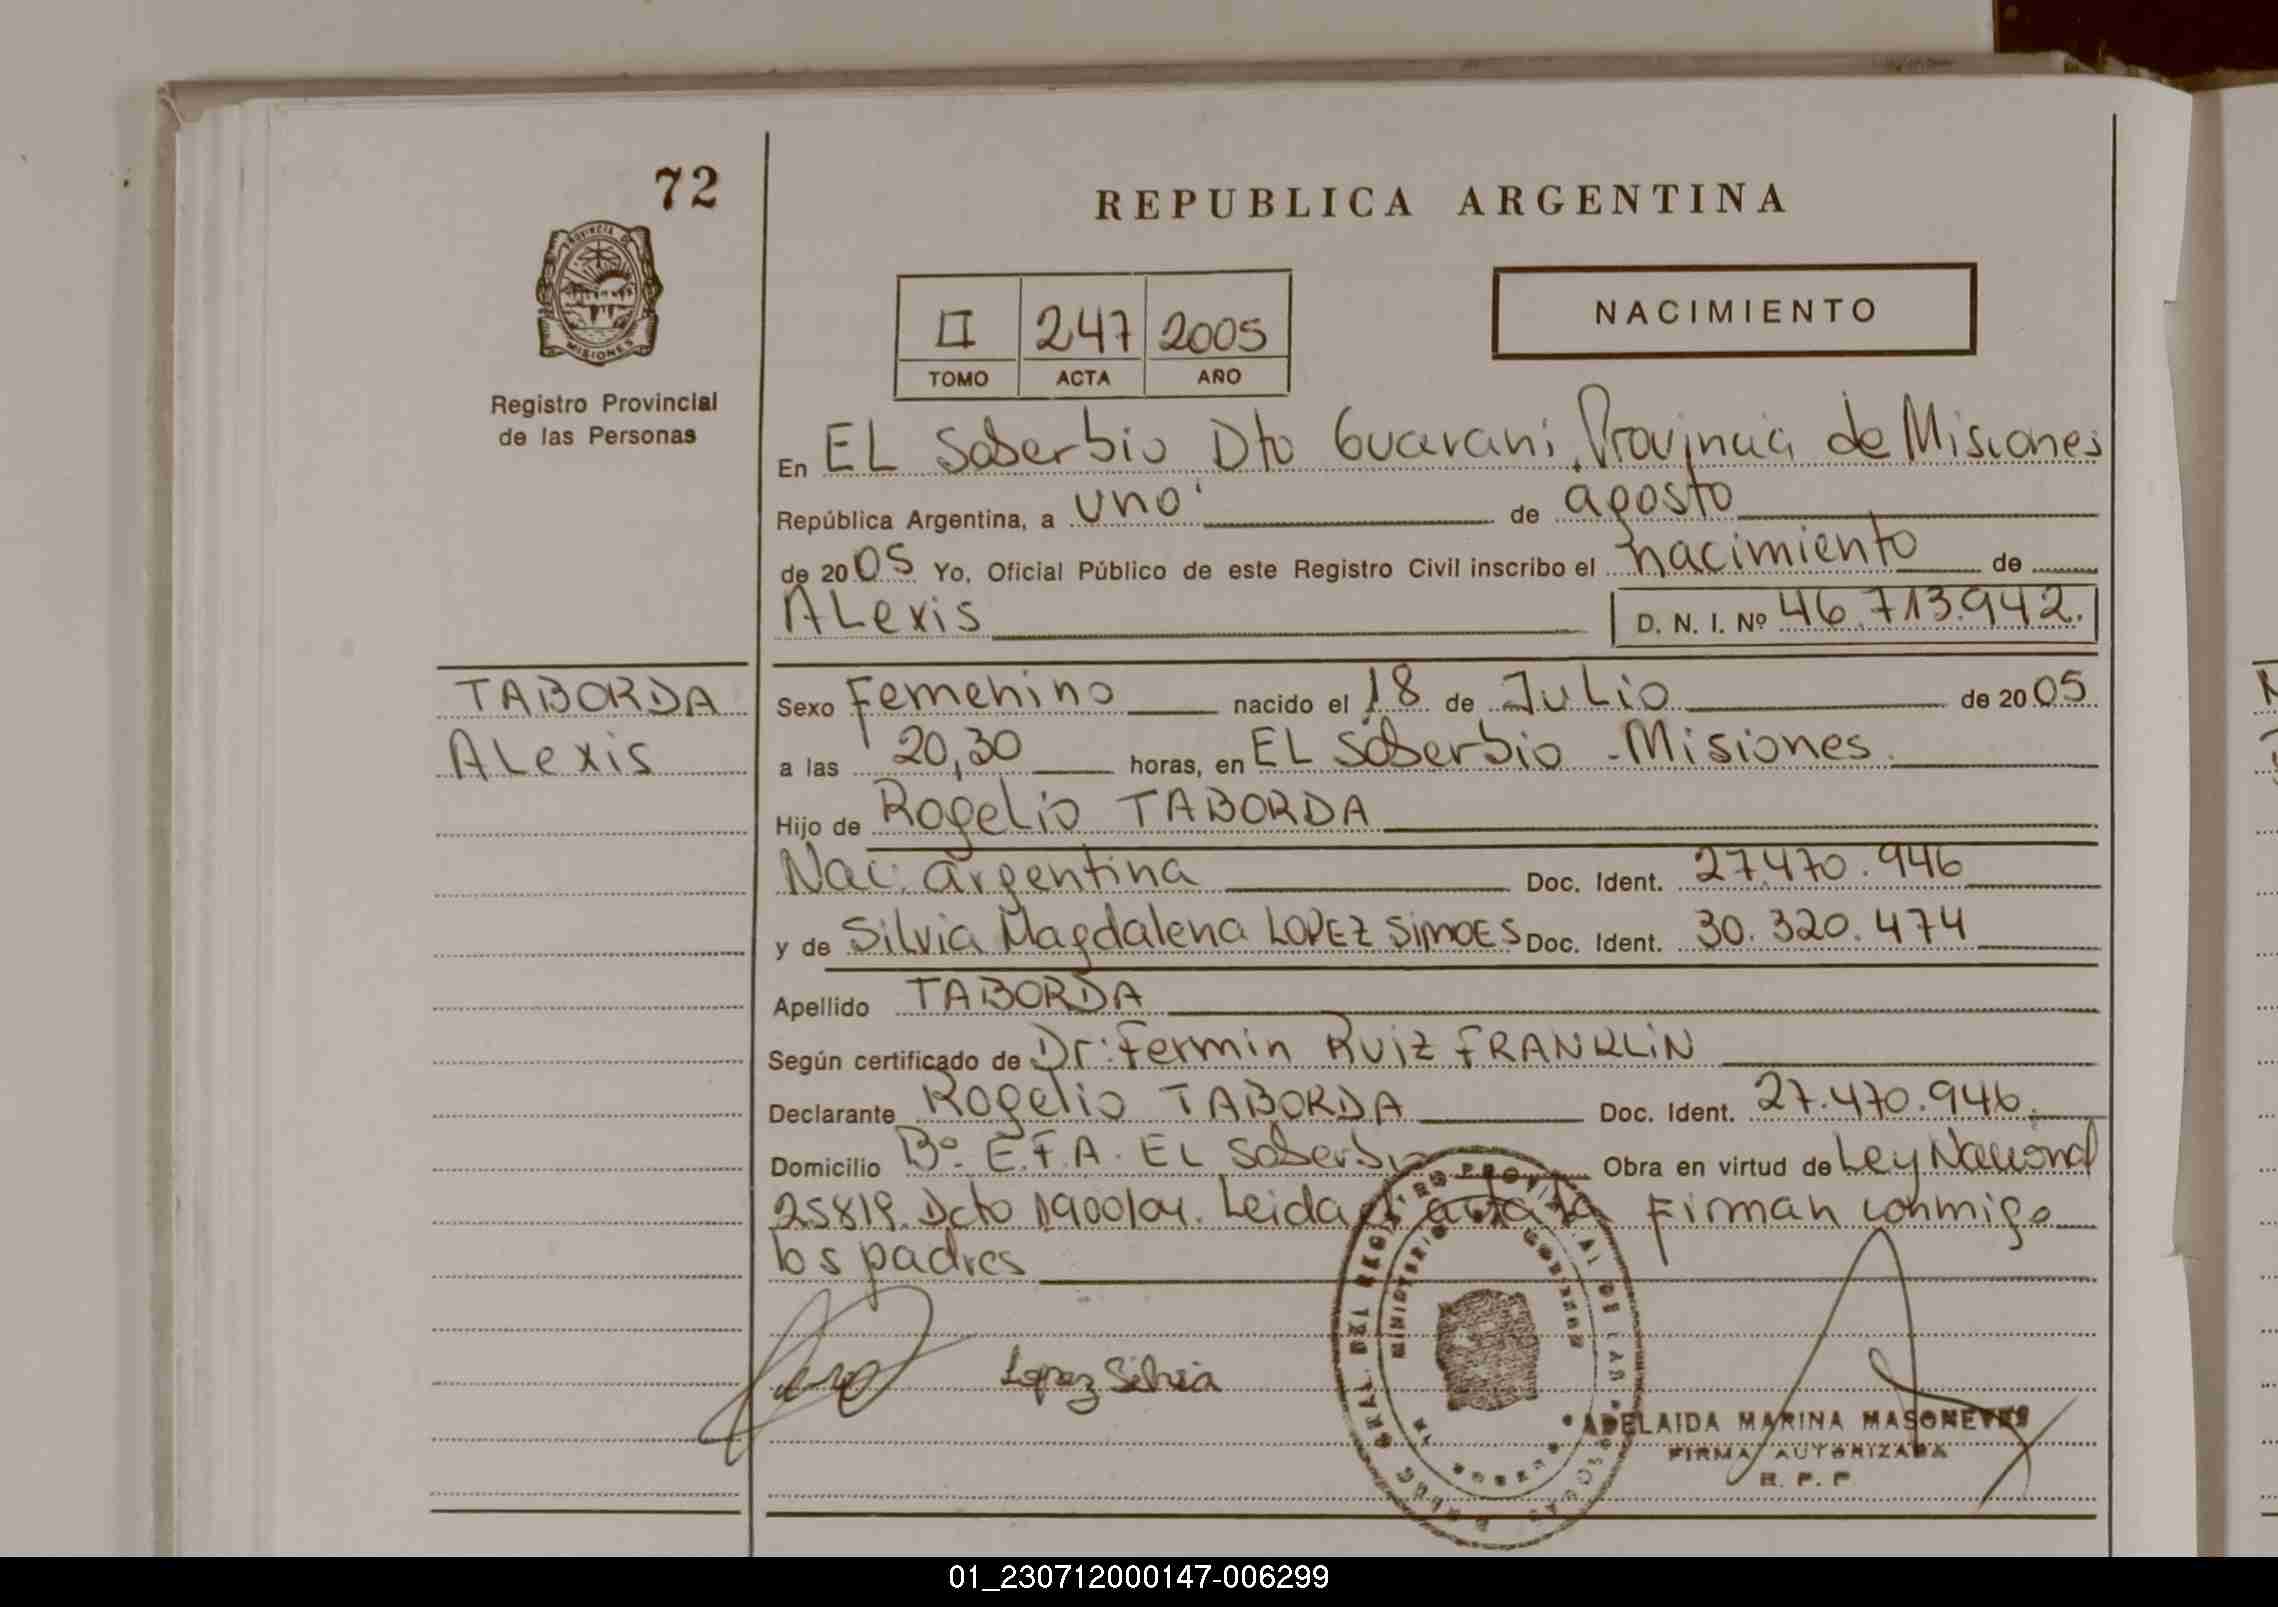 72
REPUBLICA ARGENTINA
PROVINCIA DE
MISIONES
Registro Provincial
de las Personas
NACIMIENTO
II 247 2005
TOMO ACTA AÑO
En EL Soberbio Dto Guarani, Provincia de Misiones
República Argentina, a uno de agosto
de 2005 Yo, Oficial Público de este Registro Civil inscribo el nacimiento de
ALexis D. N. I. Nº 46.713.942.
TABORDA
ALexis
Sexo Femenino nacido el 18 de JuLio de 2005
a las 20,30 horas, en EL Soberbio - Misiones
Hijo de RogeLio TABORDA
Nac. argentina Doc. Ident. 27.470.946
y de Silvia Magdalena LOPEZ SimOES Doc. Ident. 30.320.474
Apellido TABORDA
Según certificado de Dr. Fermin Ruiz FRANKLiN
Declarante Rogelio TABORDA Doc. Ident. 27.470.946.
Domicilio Bº E.F.A. EL Soberbio Obra en virtud de Ley Nacional
25819. Dcto 1900/04. Leida el acta la Firman conmigo
los padres
Lopez Silvia
ADELAIDA MARINA MASONEVES
FIRMA AUTORIZADA
R. P. P
01_230712000147-006299